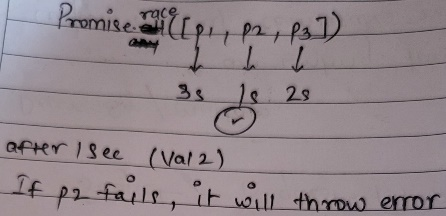 Promise.race([p1, p2, p3])
3s 1s 2s
after 1 sec (val2)
If p2 fails, it will throw error